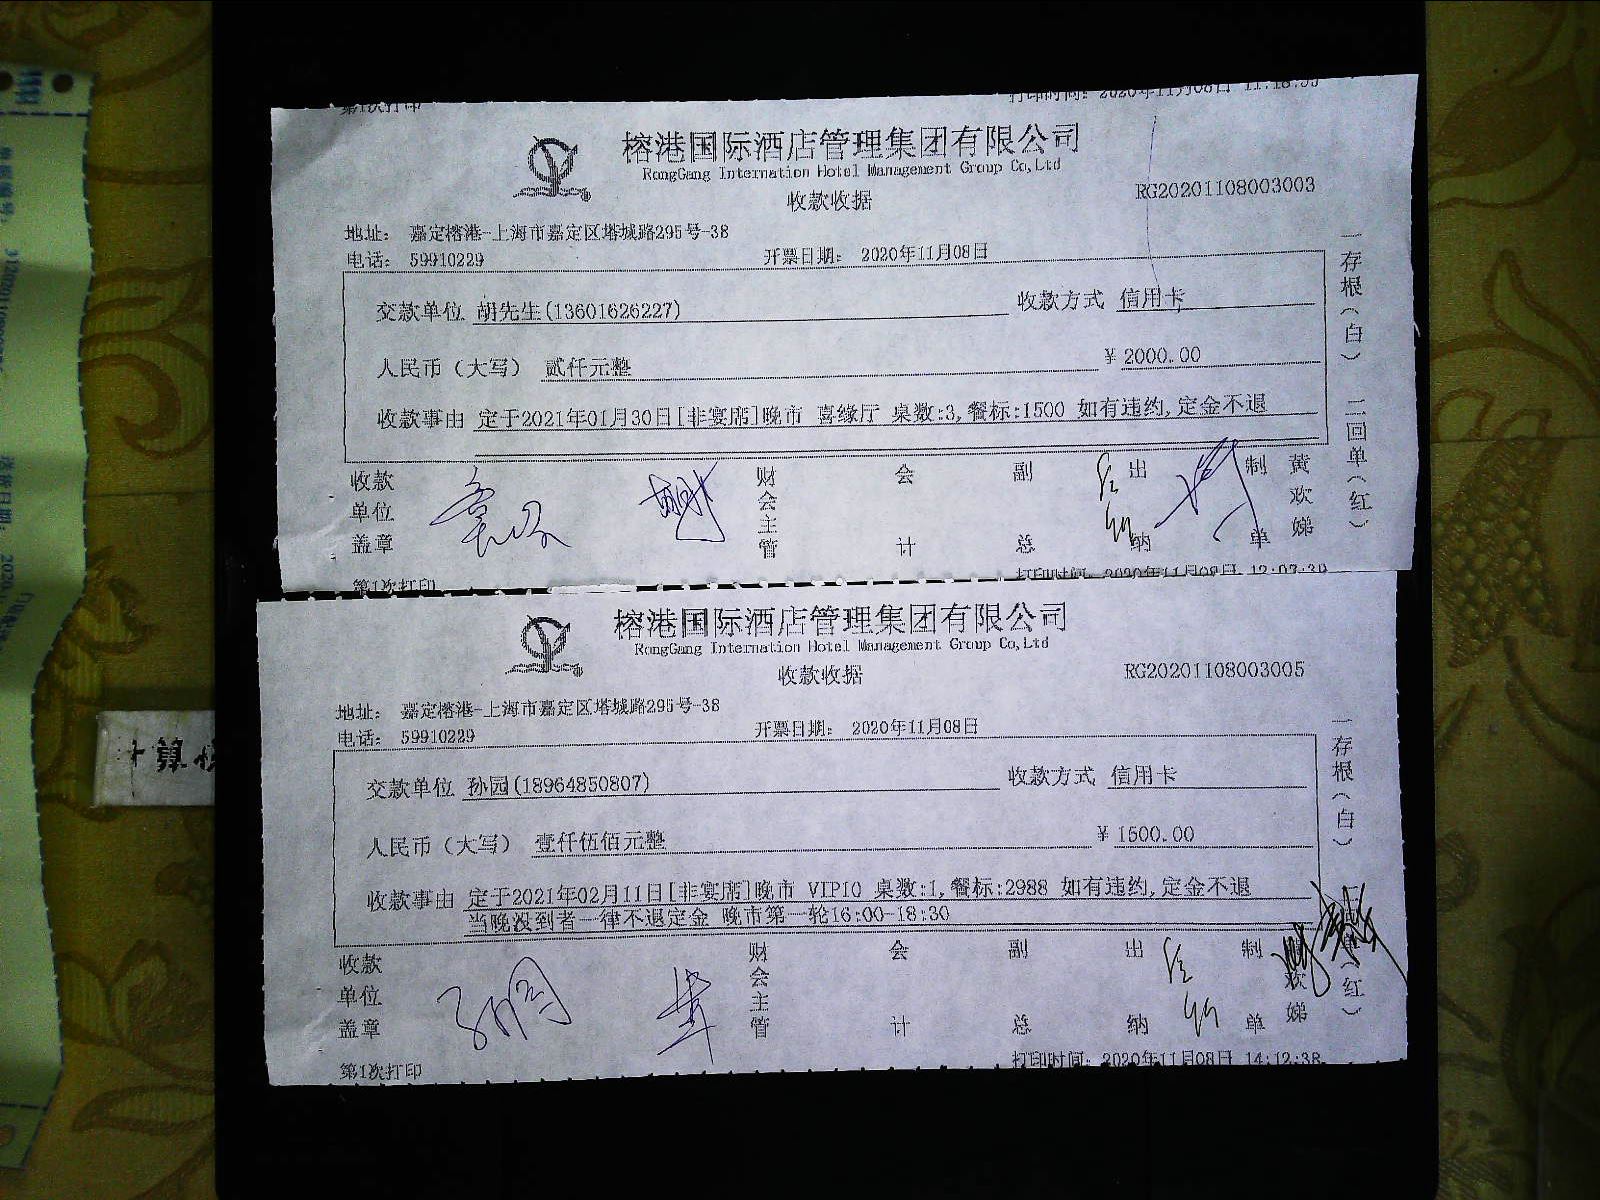 第1次打印
打印时间: 2020年11月08日 11:18:55
榕港国际酒店管理集团有限公司
RongGang Internation Hotel Management Group Co,Ltd
收款收据
RG20201108003003
地址: 嘉定榕港-上海市嘉定区塔城路295号-38
电话: 59910229
开票日期: 2020年11月08日
交款单位 胡先生(13601626227)
收款方式 信用卡
人民币（大写） 贰仟元整
¥ 2000.00
收款事由 定于2021年01月30日[非宴席]晚市 喜缘厅 桌数:3,餐标:1500 如有违约,定金不退
一存根（白） 二回单（红）
收款单位盖章
财会主管
会计
副总
出纳
制单
黄欢娣
第1次打印
打印时间: 2020年11月08日 12:07:39
榕港国际酒店管理集团有限公司
RongGang Internation Hotel Management Group Co,Ltd
收款收据
RG20201108003005
地址: 嘉定榕港-上海市嘉定区塔城路295号-38
电话: 59910229
开票日期: 2020年11月08日
交款单位 孙园(18964850807)
收款方式 信用卡
人民币（大写） 壹仟伍佰元整
¥ 1500.00
收款事由 定于2021年02月11日[非宴席]晚市 VIP10 桌数:1,餐标:2988 如有违约,定金不退
当晚没到者一律不退定金 晚市第一轮16:00-18:30
一存根（白）
单（红）
收款单位盖章
财会主管
会计
副总
出纳
制单
欢娣
第1次打印
打印时间: 2020年11月08日 14:12:38